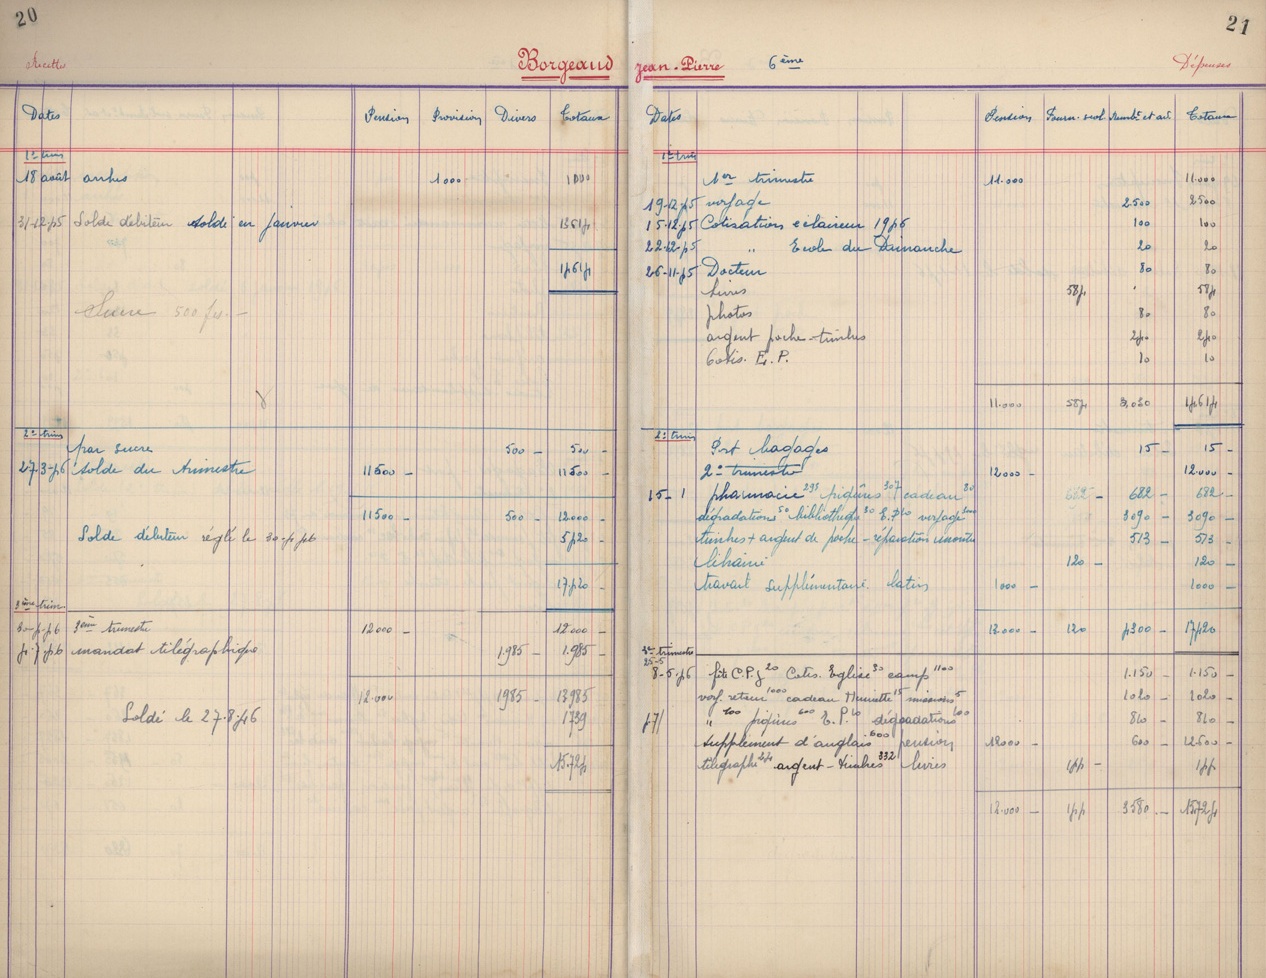 20
Recettes
Borgeaud
Dates Pension Provision Divers Totaux
1er trim
18 août arrhes 1000 1000
31-12-45 Solde débiteur soldé en janvier
Sucre 500 frs. —
2e trim
par sucre 500 — 500 —
27-3-46 Solde du trimestre 11500 — 11500 —
11500 — 500 — 12000 —
Solde débiteur réglé le 30-4-46 5420 —
17420 —
3ème trim.
30-4-46 3ème trimestre 12000 — 12000 —
4-7-46 mandat télégraphique 1985 — 1.985 —
12.000 1985 — 13985
Soldé le 27.8.46 1739
15724
21
Jean-Pierre 6ème
Dépenses
Dates Pension Fourn. scol. Totaux
1er trim
1er trimestre 11.000 11.000
voyage 2.500 2500
15-12-45 Cotisations éclaireur 1946 100 100
22-12-45 " Ecole du Dimanche 20 20
26-11-45 Docteur 80 80
Livres 584 584
photos 80 80
argent poche - timbres 240 240
Cotis. E.P. 10 10
11.000 584
2e trim
Port bagages 15 — 15 —
2e trimestre 12000 — 12.000 —
15-1 pharmacie piqûres 307 cadeau 682 — 682 — 682 —
dégradations 50 E.P. 10 voyage 3090 — 3090 —
timbres + argent de poche - réparation 513 — 513 —
librairie 120 — 120 —
travail supplémentaire latin 1000 — 1000 —
13.000 — 120 4300 — 17420 —
3e trimestre
25-5
8-5-46 fête Cotis. Eglise camp 1100 1.150 — 1.150 —
retour 1000 cadeau Mariette 15 missions 5 1020 — 1020 —
piqûres E.P. 10 dégradations 100 810 — 810 —
supplément d'anglais 600 pension 12000 — 600 — 12.600 —
télégraphe argent - timbres 332 livres 144 — 144
12.000 — 144 3580 — 15724 —